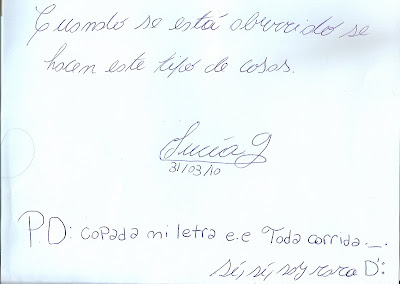 Cuando se está aburrido se
hacen este tipo de cosas.
Lucía G
31/03/10
P.D: copada mi letra e.e Toda corrida ._.
sí, sí, soy rara D':